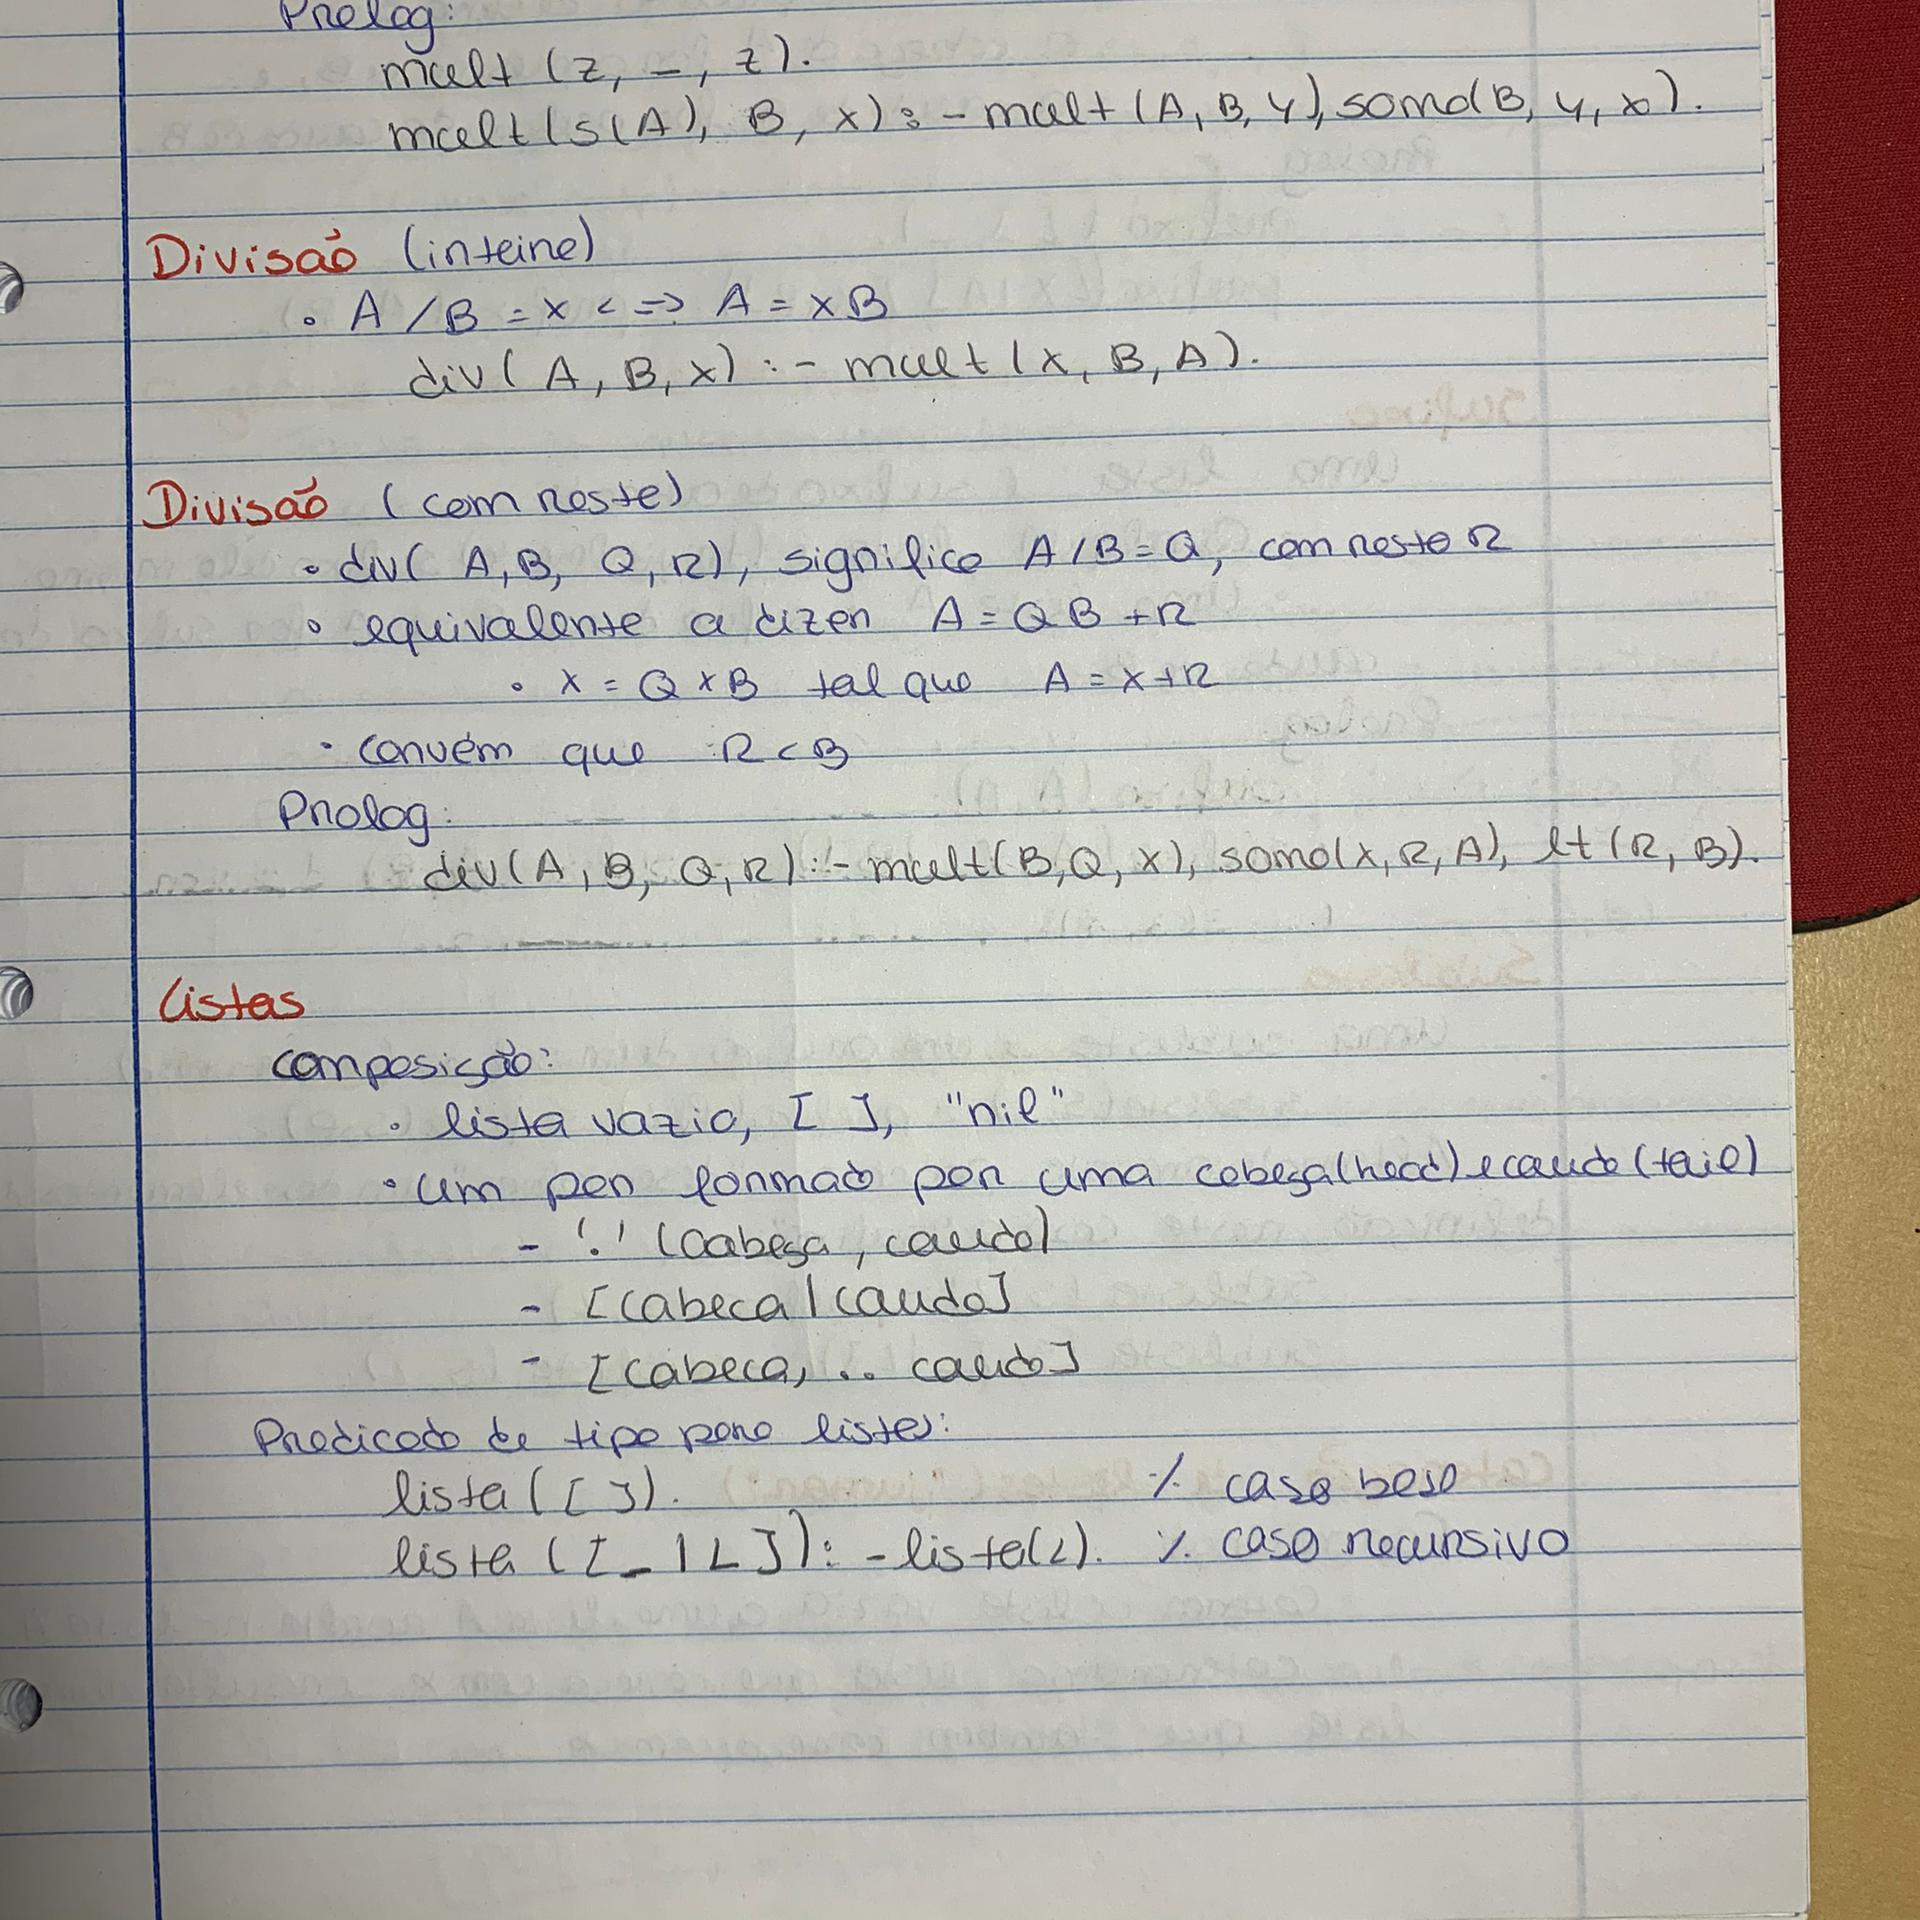 Prolog:
mult (z, _, z).
mult (s(A), B, X) :- mult (A, B, Y), soma(B, Y, X).
Divisão (inteira)
• A / B = X <=> A = XB
div( A, B, X) :- mult (X, B, A).
Divisão (com resto)
• div( A, B, Q, R), significa A/B = Q, com resto R
• equivalente a dizer A = QB + R
• X = Q x B tal que A = X + R
• convém que R < B
Prolog:
div(A, B, Q, R) :- mult(B, Q, X), soma(X, R, A), lt (R, B).
Listas
composição:
• lista vazia, [ ], "nil"
• um par formado por uma cabeça (head) e cauda (tail)
- '.' (cabeça, cauda)
- [cabeca | cauda]
- [cabeca, .. cauda]
Predicado de tipo para listas:
lista ([ ]). % caso base
lista ([_ | L]) :- lista(L). % caso recursivo